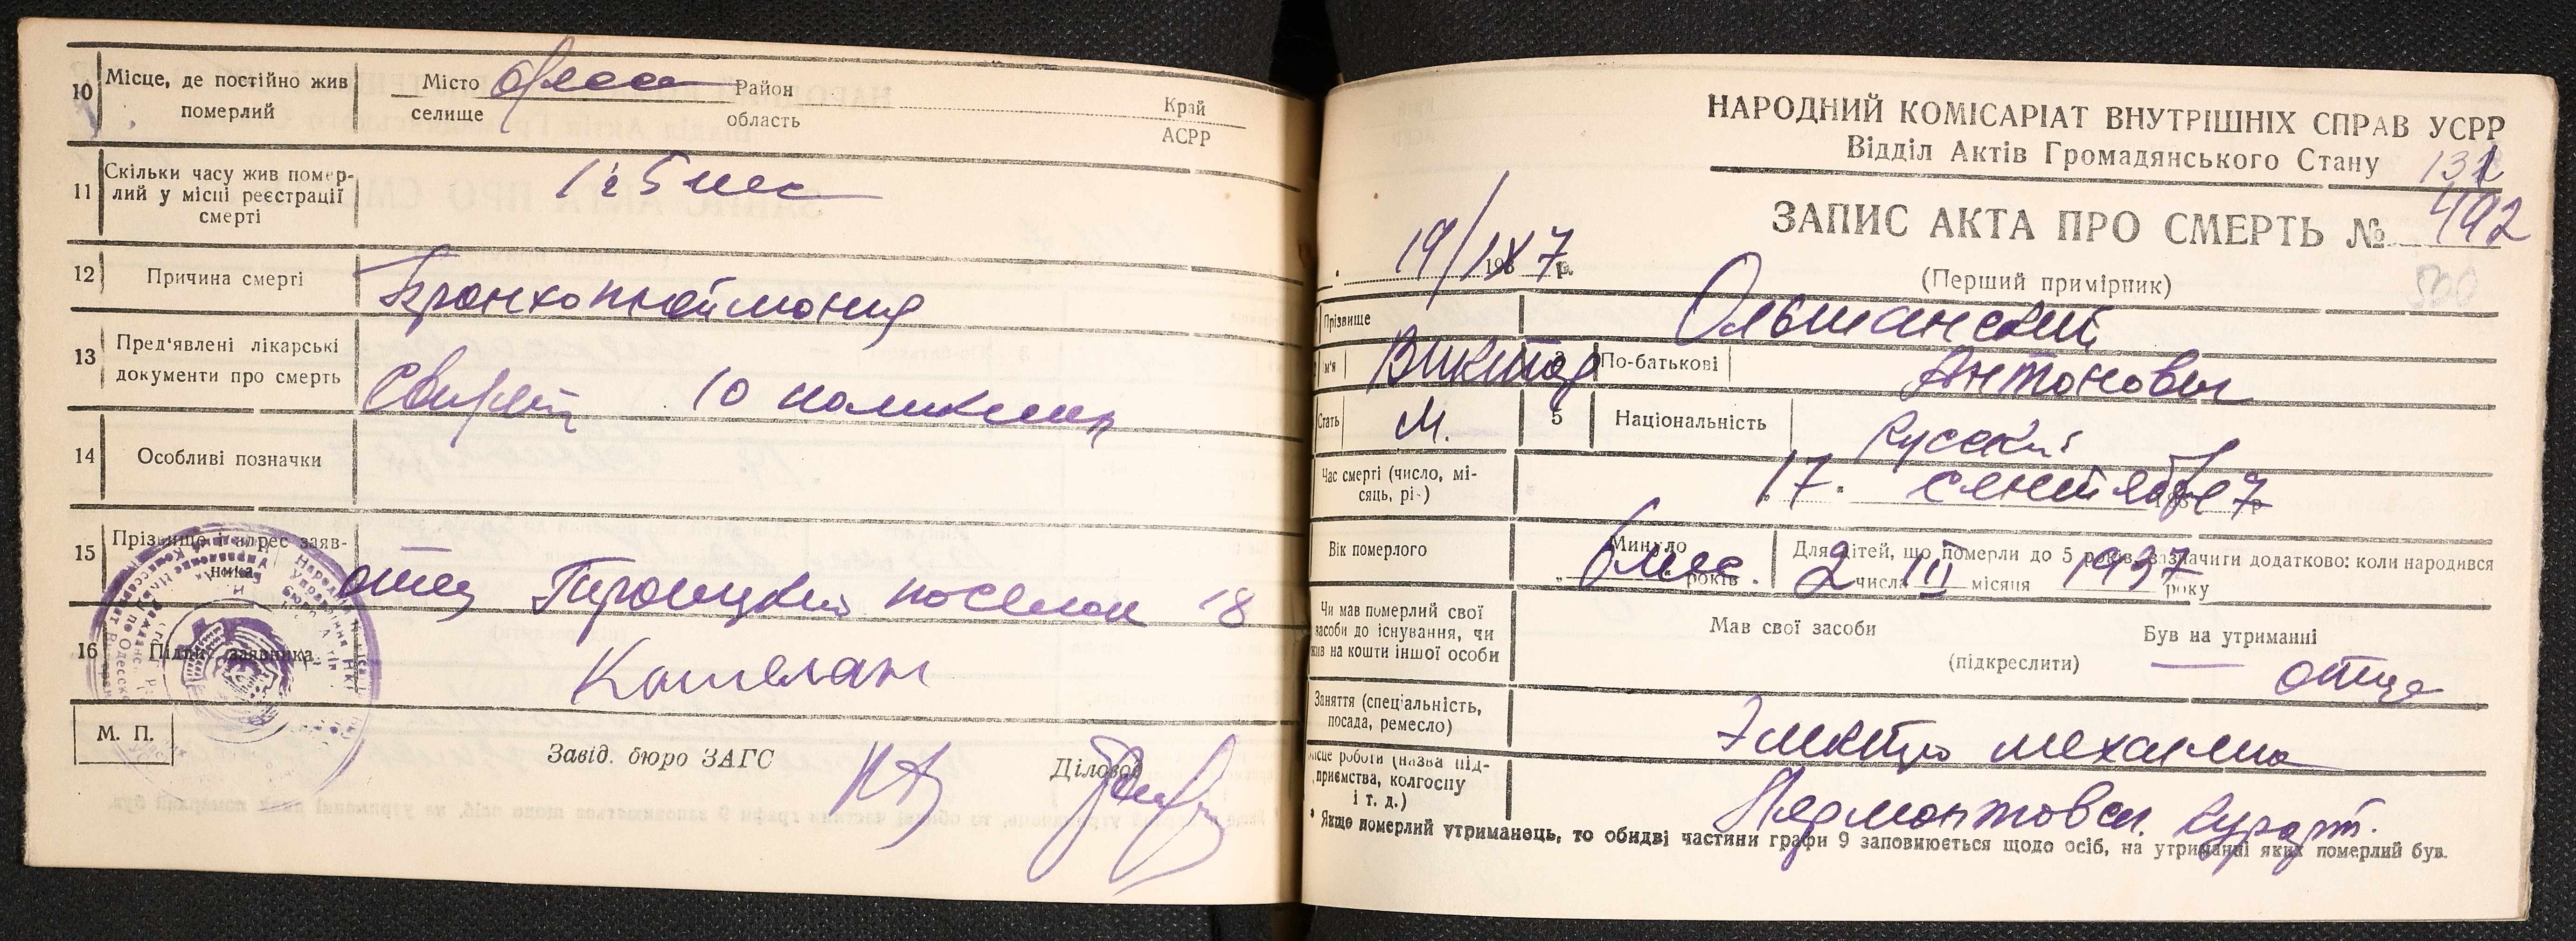 10 Місце, де постійно жив померлий
Місто Одесса Район Край
селище область АСРР
11 Скільки часу жив помер-
лий у місці реєстрації
смерті
5 мес
12 Причина смерті Бронхопнеймония
13 Пред'явлені лікарські
документи про смерть
10 поликлин
14 Особливі позначки
15 Прізвище і адрес заяв-
ника
отец Троицкий поселок 18
16 Підпис заявника
М. П.
Завід. бюро ЗАГС Діловод
НАРОДНИЙ КОМІСАРІАТ ВНУТРІШНІХ СПРАВ УСРР
Відділ Актів Громадянського Стану
ЗАПИС АКТА ПРО СМЕРТЬ № 492
19/IX 1937 р.
(Перший примірник)
500
Прізвище Ольшанский
Ім'я Виктор 3 По-батькові Антонович
Стать М. 5 Національність Русский
Час смерті (число, мі-
сяць, рік) 17 сентября 1937 р
Вік померлого
Минуло 6 мес. років
Для дітей, що померли до 5 років, зазначити додатково: коли народився
2 числа III місяця 1937 року
Чи мав померлий свої
засоби до існування, чи
жив на кошти іншої особи
Мав свої засоби Був на утриманні
(підкреслити) отца
Заняття (спеціальність,
посада, ремесло)
Электро механик
Місце роботи (назва під-
приємства, колгоспу
і т. д.)
Лермонтовск. курорт.
* Якщо померлий утриманець, то обидві частини графи 9 заповнюється щодо осіб, на утриманні яких померлий був.